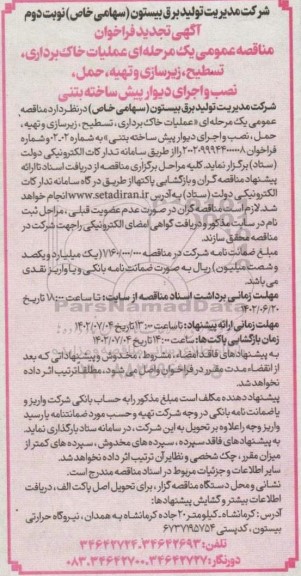 شرکت مدیریت تولید برق بیستون (سهامی خاص) نوبت دوم
آگهی تجدید فراخوان
مناقصه عمومی یک مرحله‌ای عملیات خاک برداری،
تسطیح، زیرسازی و تهیه، حمل،
نصب و اجرای دیوار پیش ساخته بتنی
شرکت مدیریت تولید برق بیستون (سهامی خاص) در نظر دارد مناقصه
عمومی یک مرحله‌ای «عملیات خاک برداری، تسطیح، زیرسازی و تهیه،
حمل، نصب و اجرای دیوار پیش ساخته بتنی» به شماره ۰۲-۲ و شماره
فراخوان را از طریق سامانه تدارکات الکترونیکی دولت
(ستاد) برگزار نماید. کلیه مراحل برگزاری مناقصه از دریافت اسناد تا ارائه
پیشنهاد مناقصه گران و بازگشایی پاکتها از طریق درگاه سامانه تدارکات
الکترونیکی دولت (ستاد) به آدرس www.setadiran.ir انجام خواهد
شد. لازم است مناقصه گران در صورت عدم عضویت قبلی، مراحل ثبت
نام در سایت مذکور و دریافت گواهی امضای الکترونیکی را جهت شرکت در
مناقصه محقق سازند.
مبلغ ضمانت نامه شرکت در مناقصه ۱/۱۶۰/۰۰۰/۰۰۰ (یک میلیارد و یکصد
و شصت میلیون) ریال به صورت ضمانت نامه بانکی و یا واریز نقدی
می باشد.
مهلت زمانی برداشت اسناد مناقصه از سایت: تا ساعت ۱۸:۰۰ تاریخ
۱۴۰۲/۰۶/۲۰
مهلت زمانی ارائه پیشنهاد: تا ساعت ۱۳:۰۰ تاریخ ۱۴۰۲/۰۷/۰۴
زمان بازگشایی پاکت‌ها: ساعت ۱۴:۰۰ تاریخ ۱۴۰۲/۰۷/۰۴
به پیشنهادهای فاقد امضاء، مشروط، مخدوش و پیشنهاداتی که بعد
از انقضاء مدت مقرر در فراخوان واصل می شود، مطلقا ترتیب اثر داده
نخواهد شد.
پیشنهاد دهنده مکلف است مبلغ مذکور را به حساب بانکی شرکت واریز و
یا ضمانت نامه بانکی در وجه شرکت تهیه و حسب مورد ضمانتنامه یا رسید
واریز وجه را علاوه بر تحویل به این شرکت، در سامانه ستاد بارگذاری نماید.
به پیشنهادهای فاقد سپرده، سپرده های مخدوش، سپرده های کمتر از
میزان مقرر، چک شخصی و نظایر آن ترتیب اثر داده نخواهد شد.
سایر اطلاعات و جزئیات مربوط در اسناد مناقصه مندرج است.
نشانی و محل دستگاه مناقصه گزار، برای تحویل اصل پاکت الف، دریافت
اطلاعات بیشتر و گشایش پیشنهادها:
آدرس: کرمانشاه- کیلومتر ۲۰ جاده کرمانشاه به همدان، نیروگاه حرارتی
بیستون، کدپستی ۶۷۳۷۱۹۵۷۵۴
تلفن: ۳۴۶۴۲۶۹۳-۳۴۶۴۲۷۲۴
دورنگار: ۳۴۶۴۳۷۳۷-۰۸۳-۳۴۶۴۲۷۰۰